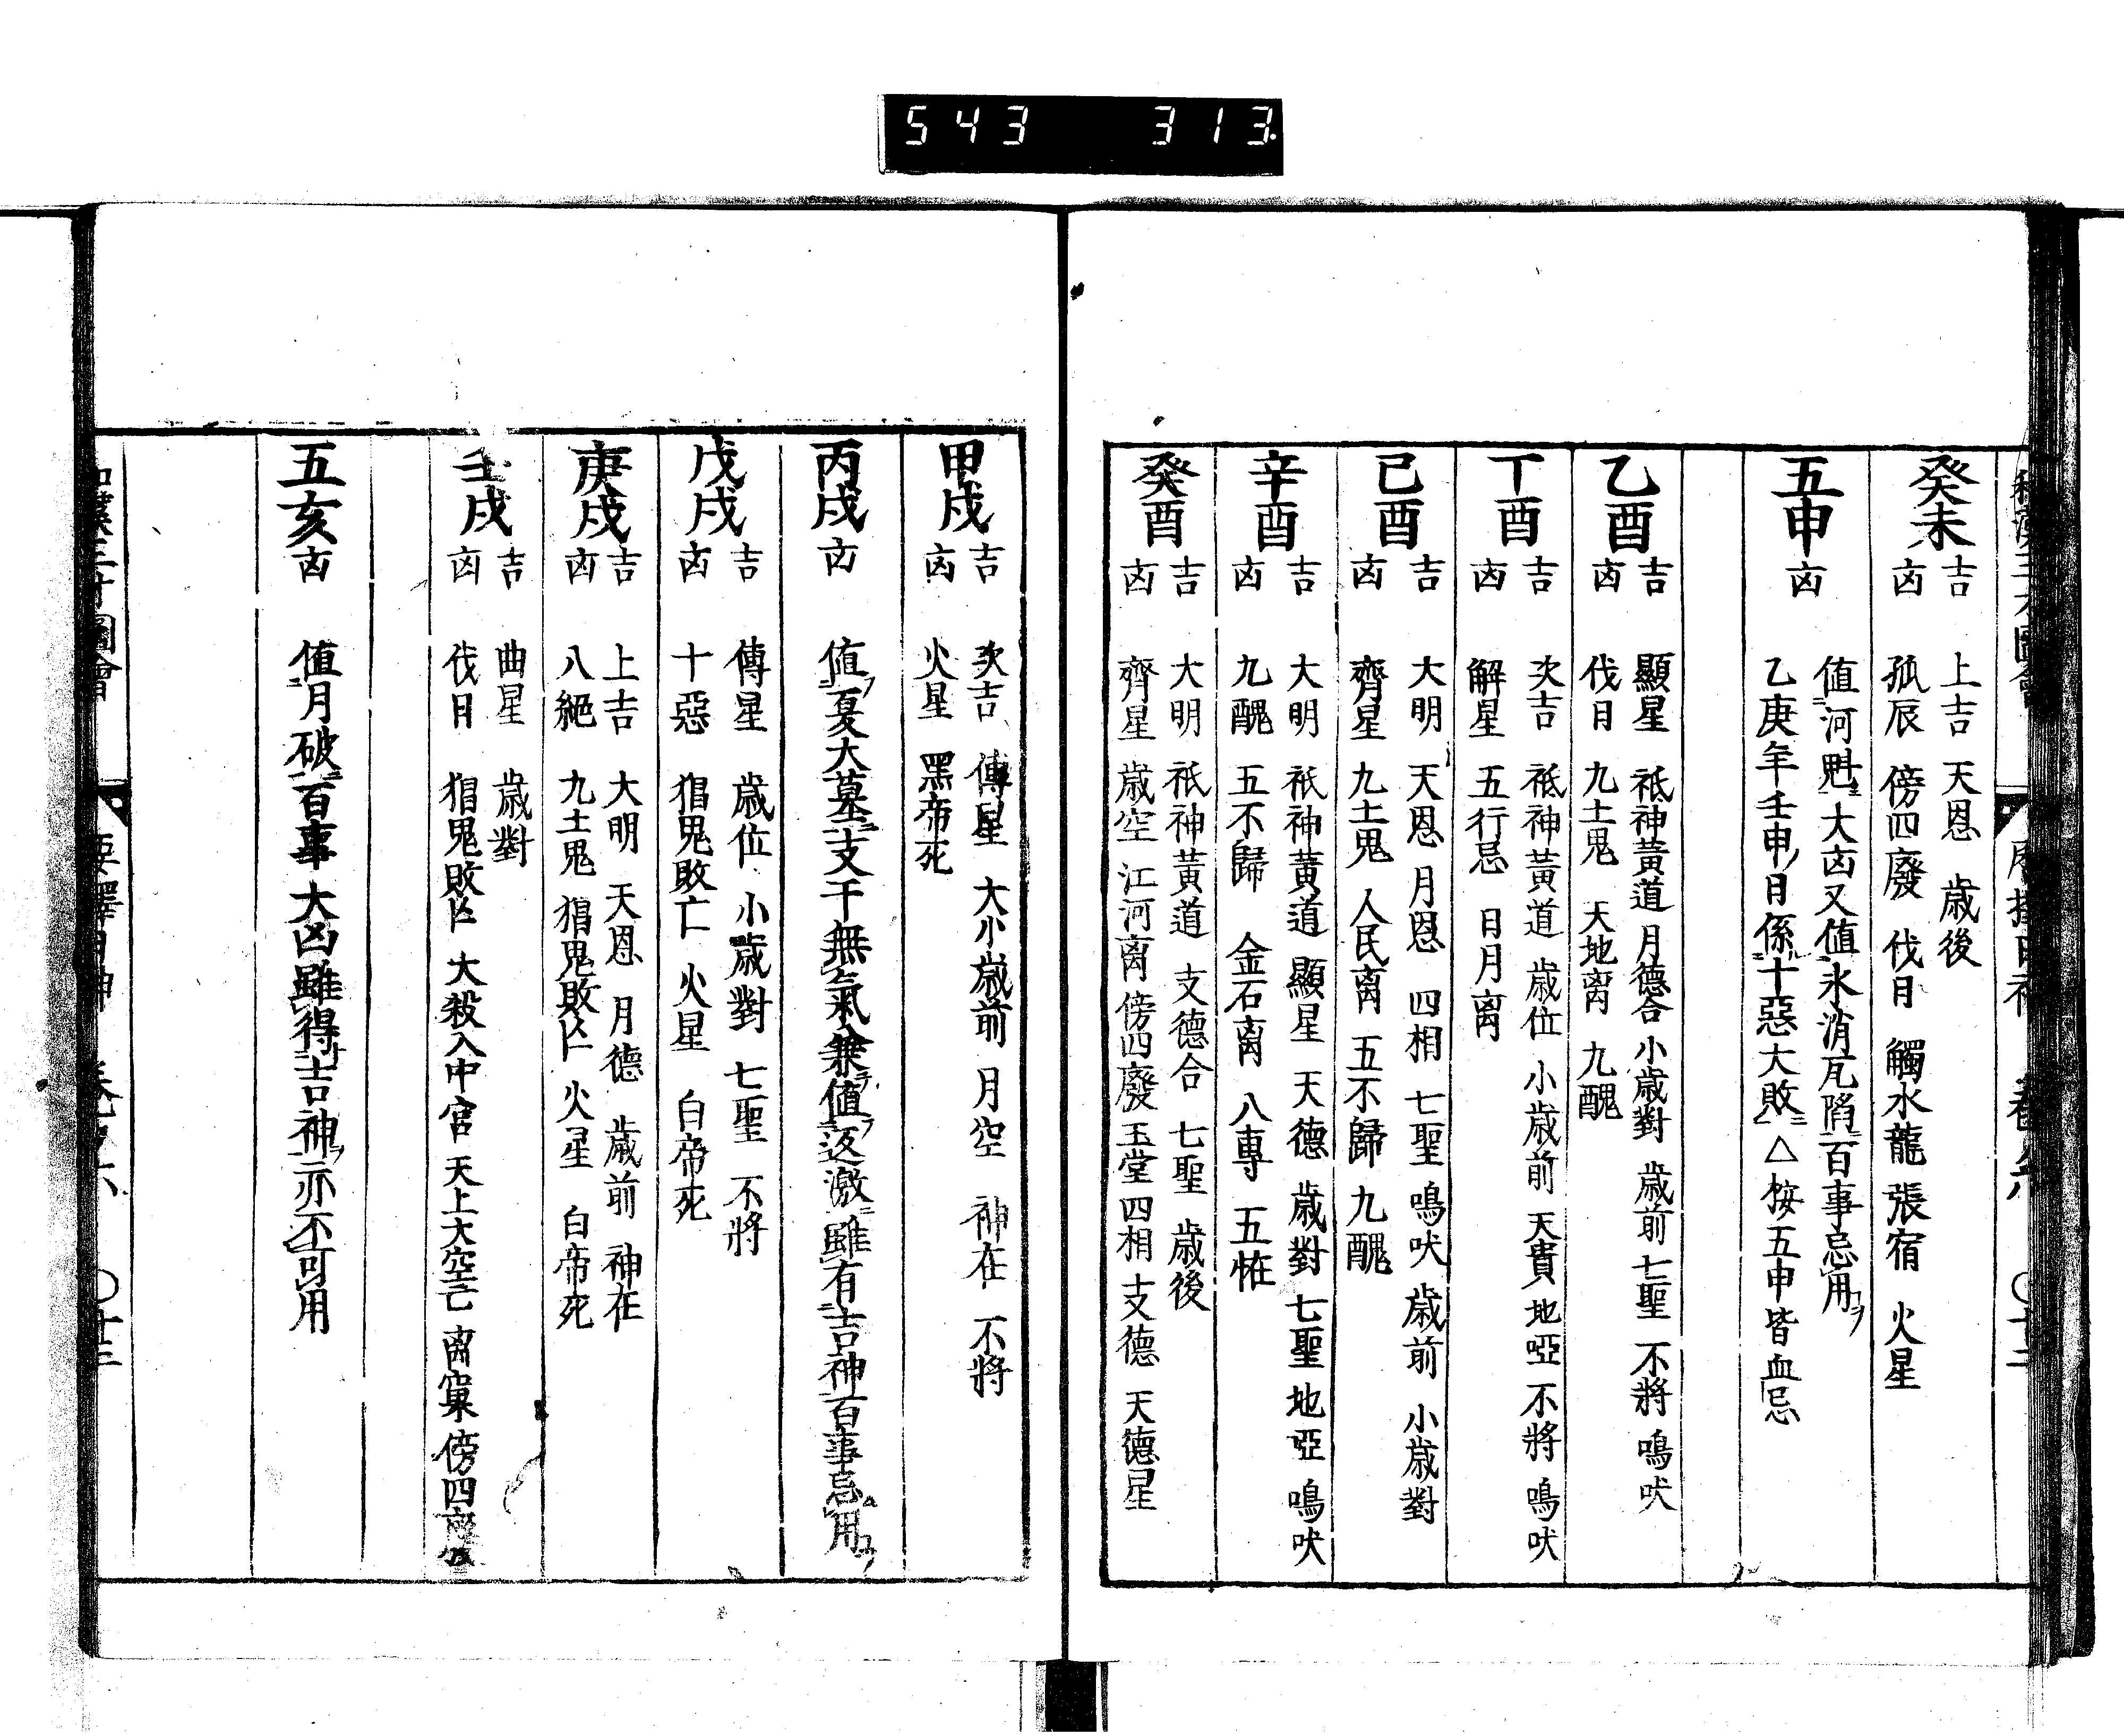 543 313
癸未
吉 上吉 天恩 歳後
凶 孤辰 傍四廢 伐日 觸水龍 張宿 火星
五申
凶 値河魁大凶又値氷消瓦陷百事忌用
乙庚年壬申日係十惡大敗△按五申皆血忌
乙酉
吉 顯星 祗神黃道 月德合 小歳對 歳前 七聖 不將 鳴吠
凶 伐日 九土鬼 天地离 九醜
丁酉
吉 次吉 祗神黃道 歳位 小歳前 天貴 地啞 不將 鳴吠
凶 解星 五行忌 日月离
己酉
吉 大明 天恩 月恩 四相 七聖 鳴吠 歳前 小歳對
凶 齊星 九土鬼 人民离 五不歸 九醜
辛酉
吉 大明 祗神黃道 顯星 天德 歳對 七聖 地啞 鳴吠
凶 九醜 五不歸 金石离 八專 五恠
癸酉
吉 大明 祗神黃道 支德合 七聖 歳後
凶 齊星 歳空 江河离 傍四廢 玉堂 四相 支德 天德星
甲戌
吉 次吉 傳星 大小歳前 月空 神在 不將
凶 火星 黑帝死
丙戌
凶 値夏大墓支干無氣兼値返激雖有吉神百事忌用
戊戌
吉 傳星 歳位 小歳對 七聖 不將
凶 十惡 猖鬼敗亡 火星 白帝死
庚戌
吉 上吉 大明 天恩 月德 歳前 神在
凶 八絕 九土鬼 猖鬼敗亡 火星 白帝死
壬戌
吉 曲星 歳對
凶 伐日 猖鬼敗亡 大殺入中宮 天上大空亡 离窠 傍四廢
五亥
凶 値月破百事大凶雖得吉神亦不可用